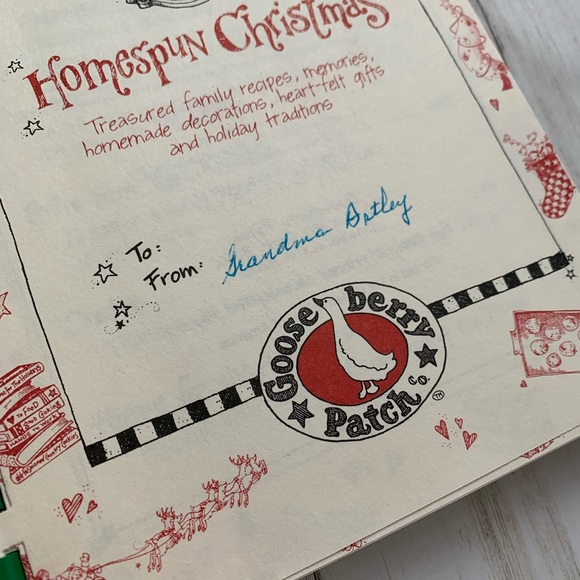 Homespun Christmas
Treasured family recipes, memories,
homemade decorations, heart-felt gifts
and holiday traditions
To:
From: Grandma Antley
Goose berry
Patch Co.
TM